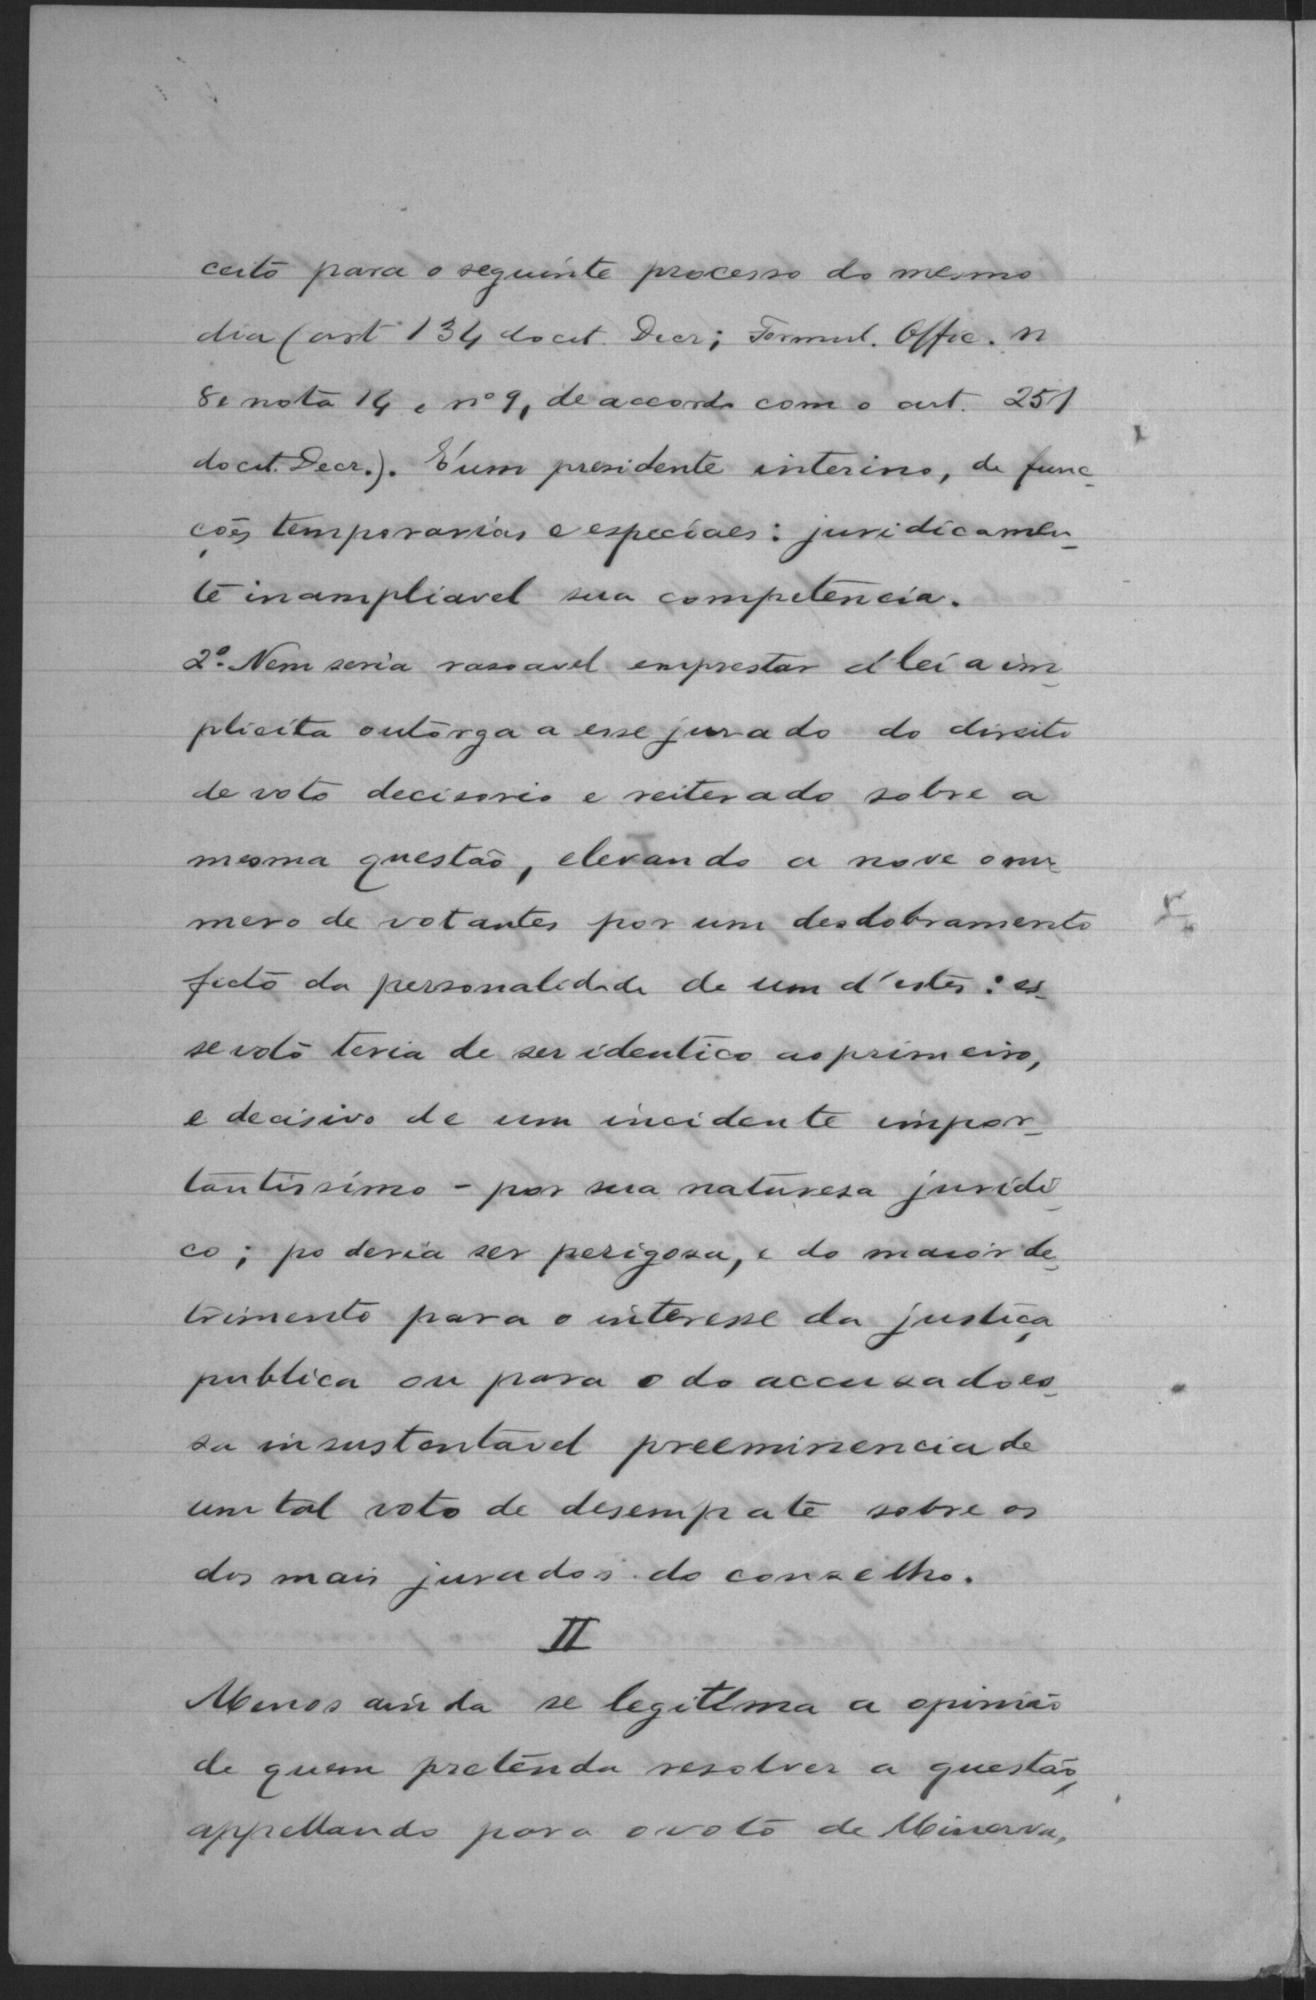 ceito para o seguinte processo do mesmo
dia (art 134 do cit. Decr; Formul. Offic. n
8 e nota 14 e nº 9, de accordo com o art. 251
do cit. Decr.). É um presidente interino, de func-
ções temporarias e especiaes: juridicamen-
te inampliavel sua competencia.
2º. Nem seria rasoavel emprestar á lei a im-
plicita outorga a esse jurado do direito
de voto decisorio e reiterado sobre a
mesma questão, elevando a nove o nu-
mero de votantes por um desdobramento
ficto da personalidade de um d'estes: es-
se voto teria de ser identico ao primeiro,
e decisivo de um incidente impor-
tantissimo - por sua naturesa juridi-
co; poderia ser perigosa, e do maior de-
trimento para o interesse da justiça
publica ou para o do accusado es-
sa insustentavel preeminencia de
um tal voto de desempate sobre os
dos mais jurados do conselho.
II
Menos ainda se legitima a opinião
de quem pretenda resolver a questão,
appellando para o voto de Minerva,